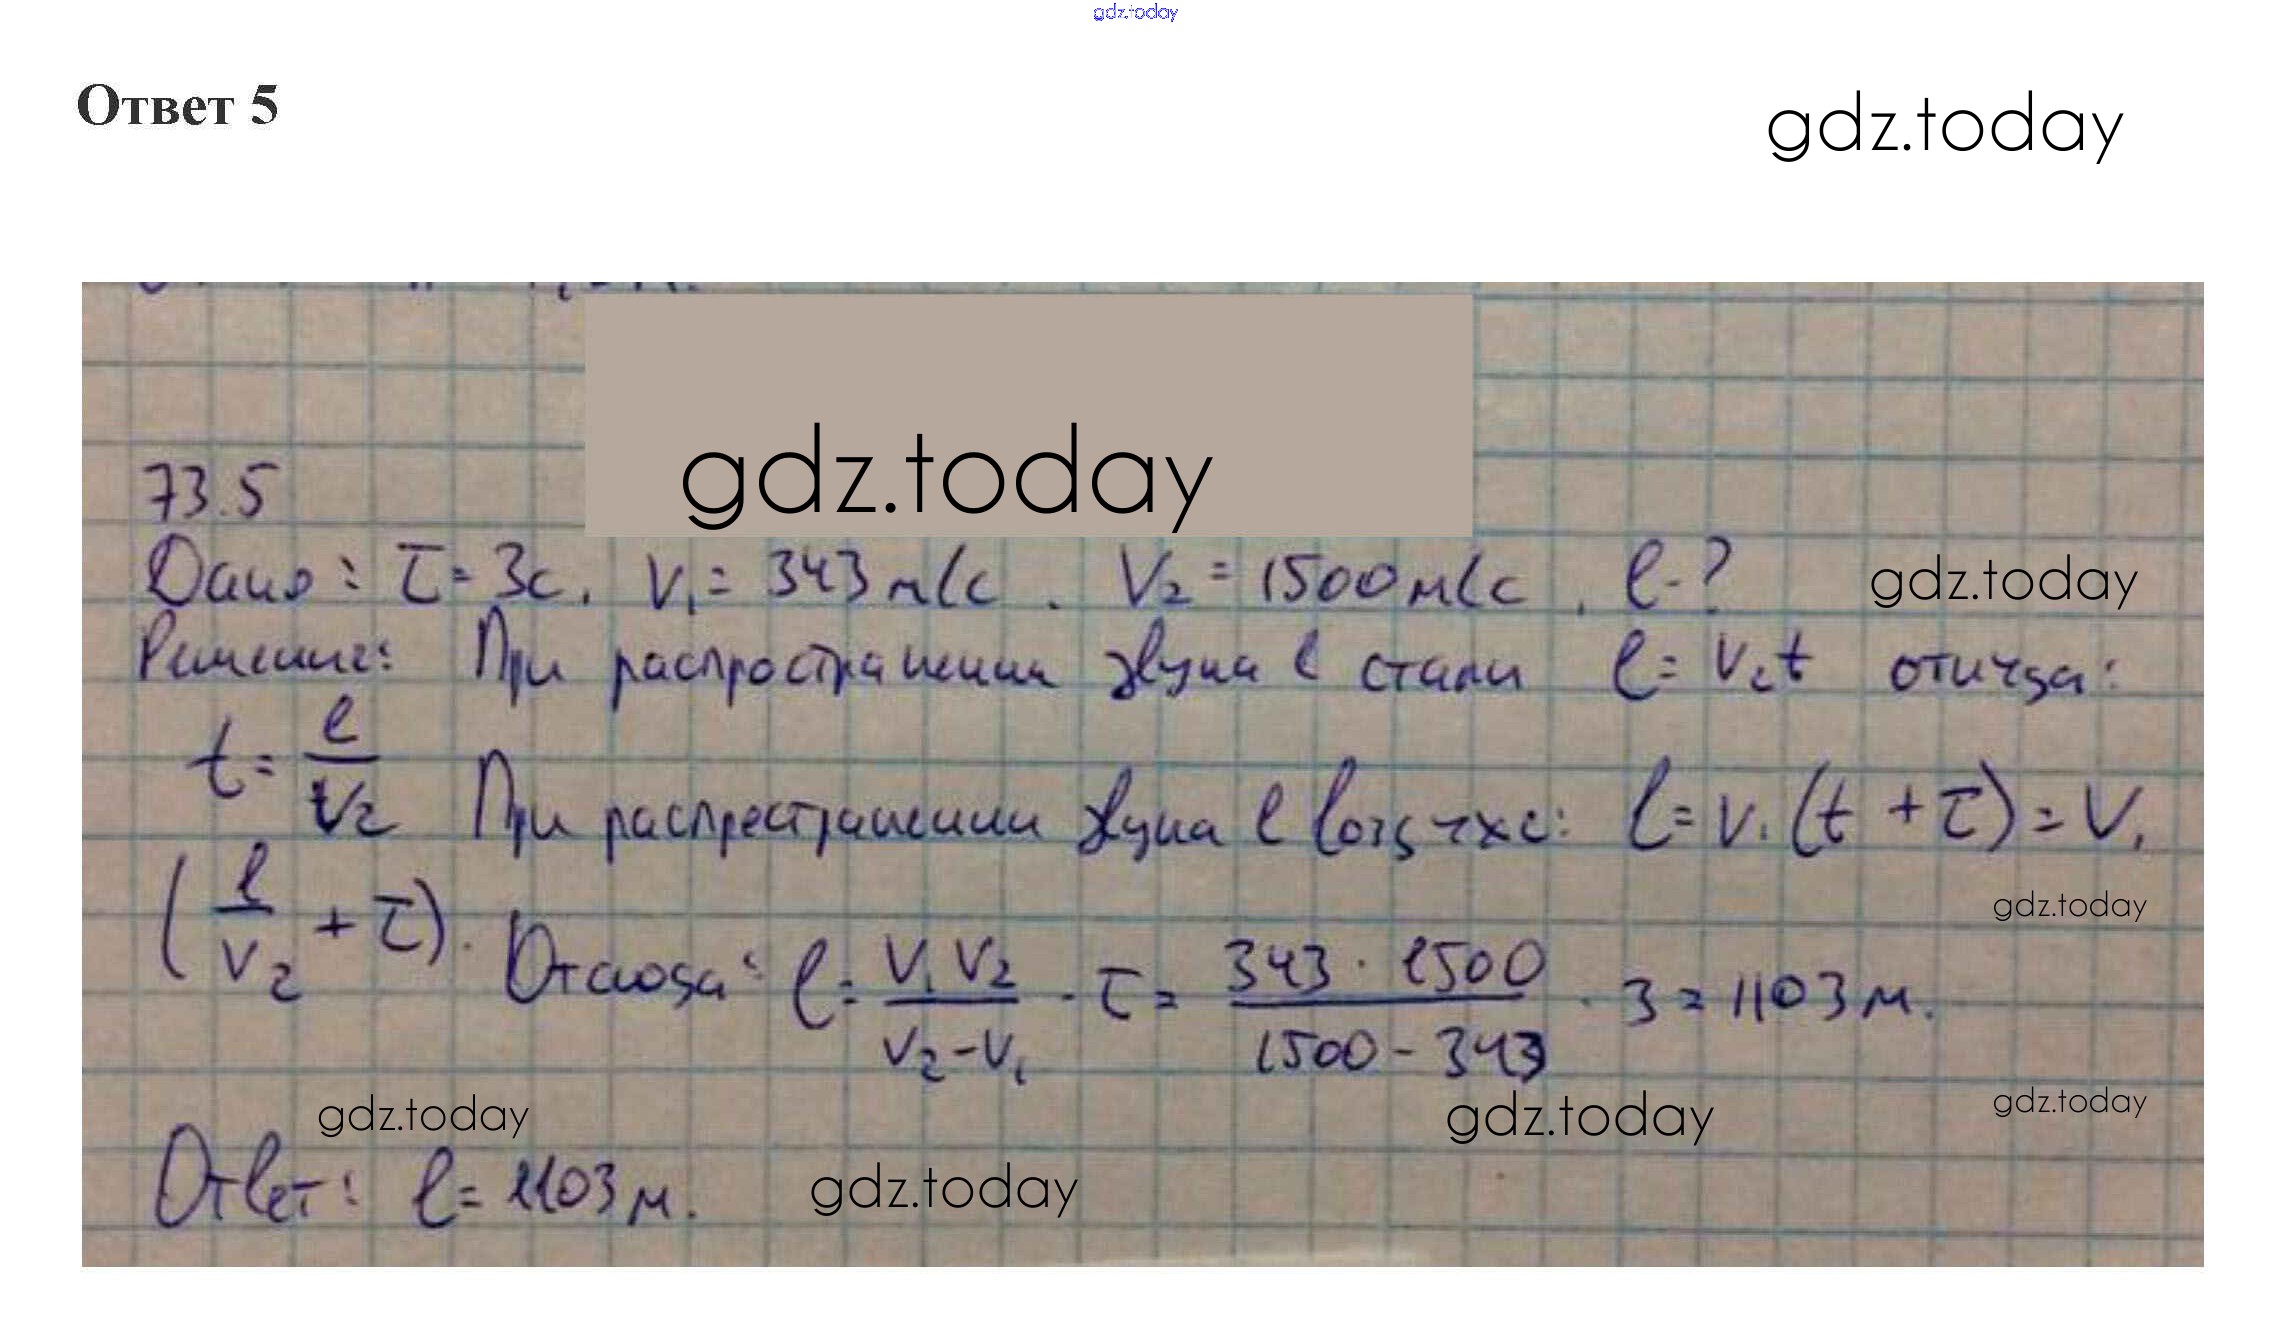 gdz.today
Ответ 5
gdz.today
gdz.today
73.5
Дано: τ = 3с. V₁ = 343 м/с. V₂ = 1500 м/с, ℓ - ? gdz.today
Решение: При распространении звука в стали ℓ = V₂t отсюда:
t = ℓ/V₂ При распрестранении звука в воздухе: ℓ = V₁(t + τ) = V₁
(ℓ/V₂ + τ). Отсюда: ℓ = V₁V₂/V₂-V₁ · τ = 343 · 1500/1500 - 343 · 3 = 1103 м.
gdz.today
gdz.today gdz.today gdz.today
Ответ: ℓ = 1103 м. gdz.today